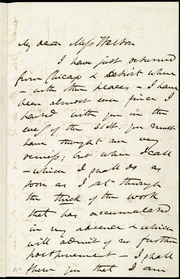 My dear Miss Weston
I have just returned
from Chicago & Detroit where
- with other places - I have
been almost ever since I
parted with you in the
eve'g of the 21st. You must
have thought me very
remiss; but when I call
- which I shall do as
soon as I get through
the thick of the work
that has accumulated
in my absence & which
will admit of no further
postponement - I shall
show you that I am